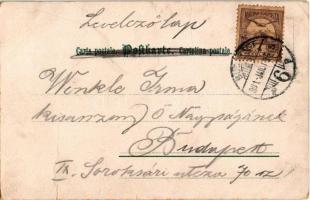 Levelező lap
Carte postale. Postkarte. Cartolina postale.
Winkle Irma
kisasszony Ő Nagyságának
Budapest
IX. Soroksári utcza 70 sz